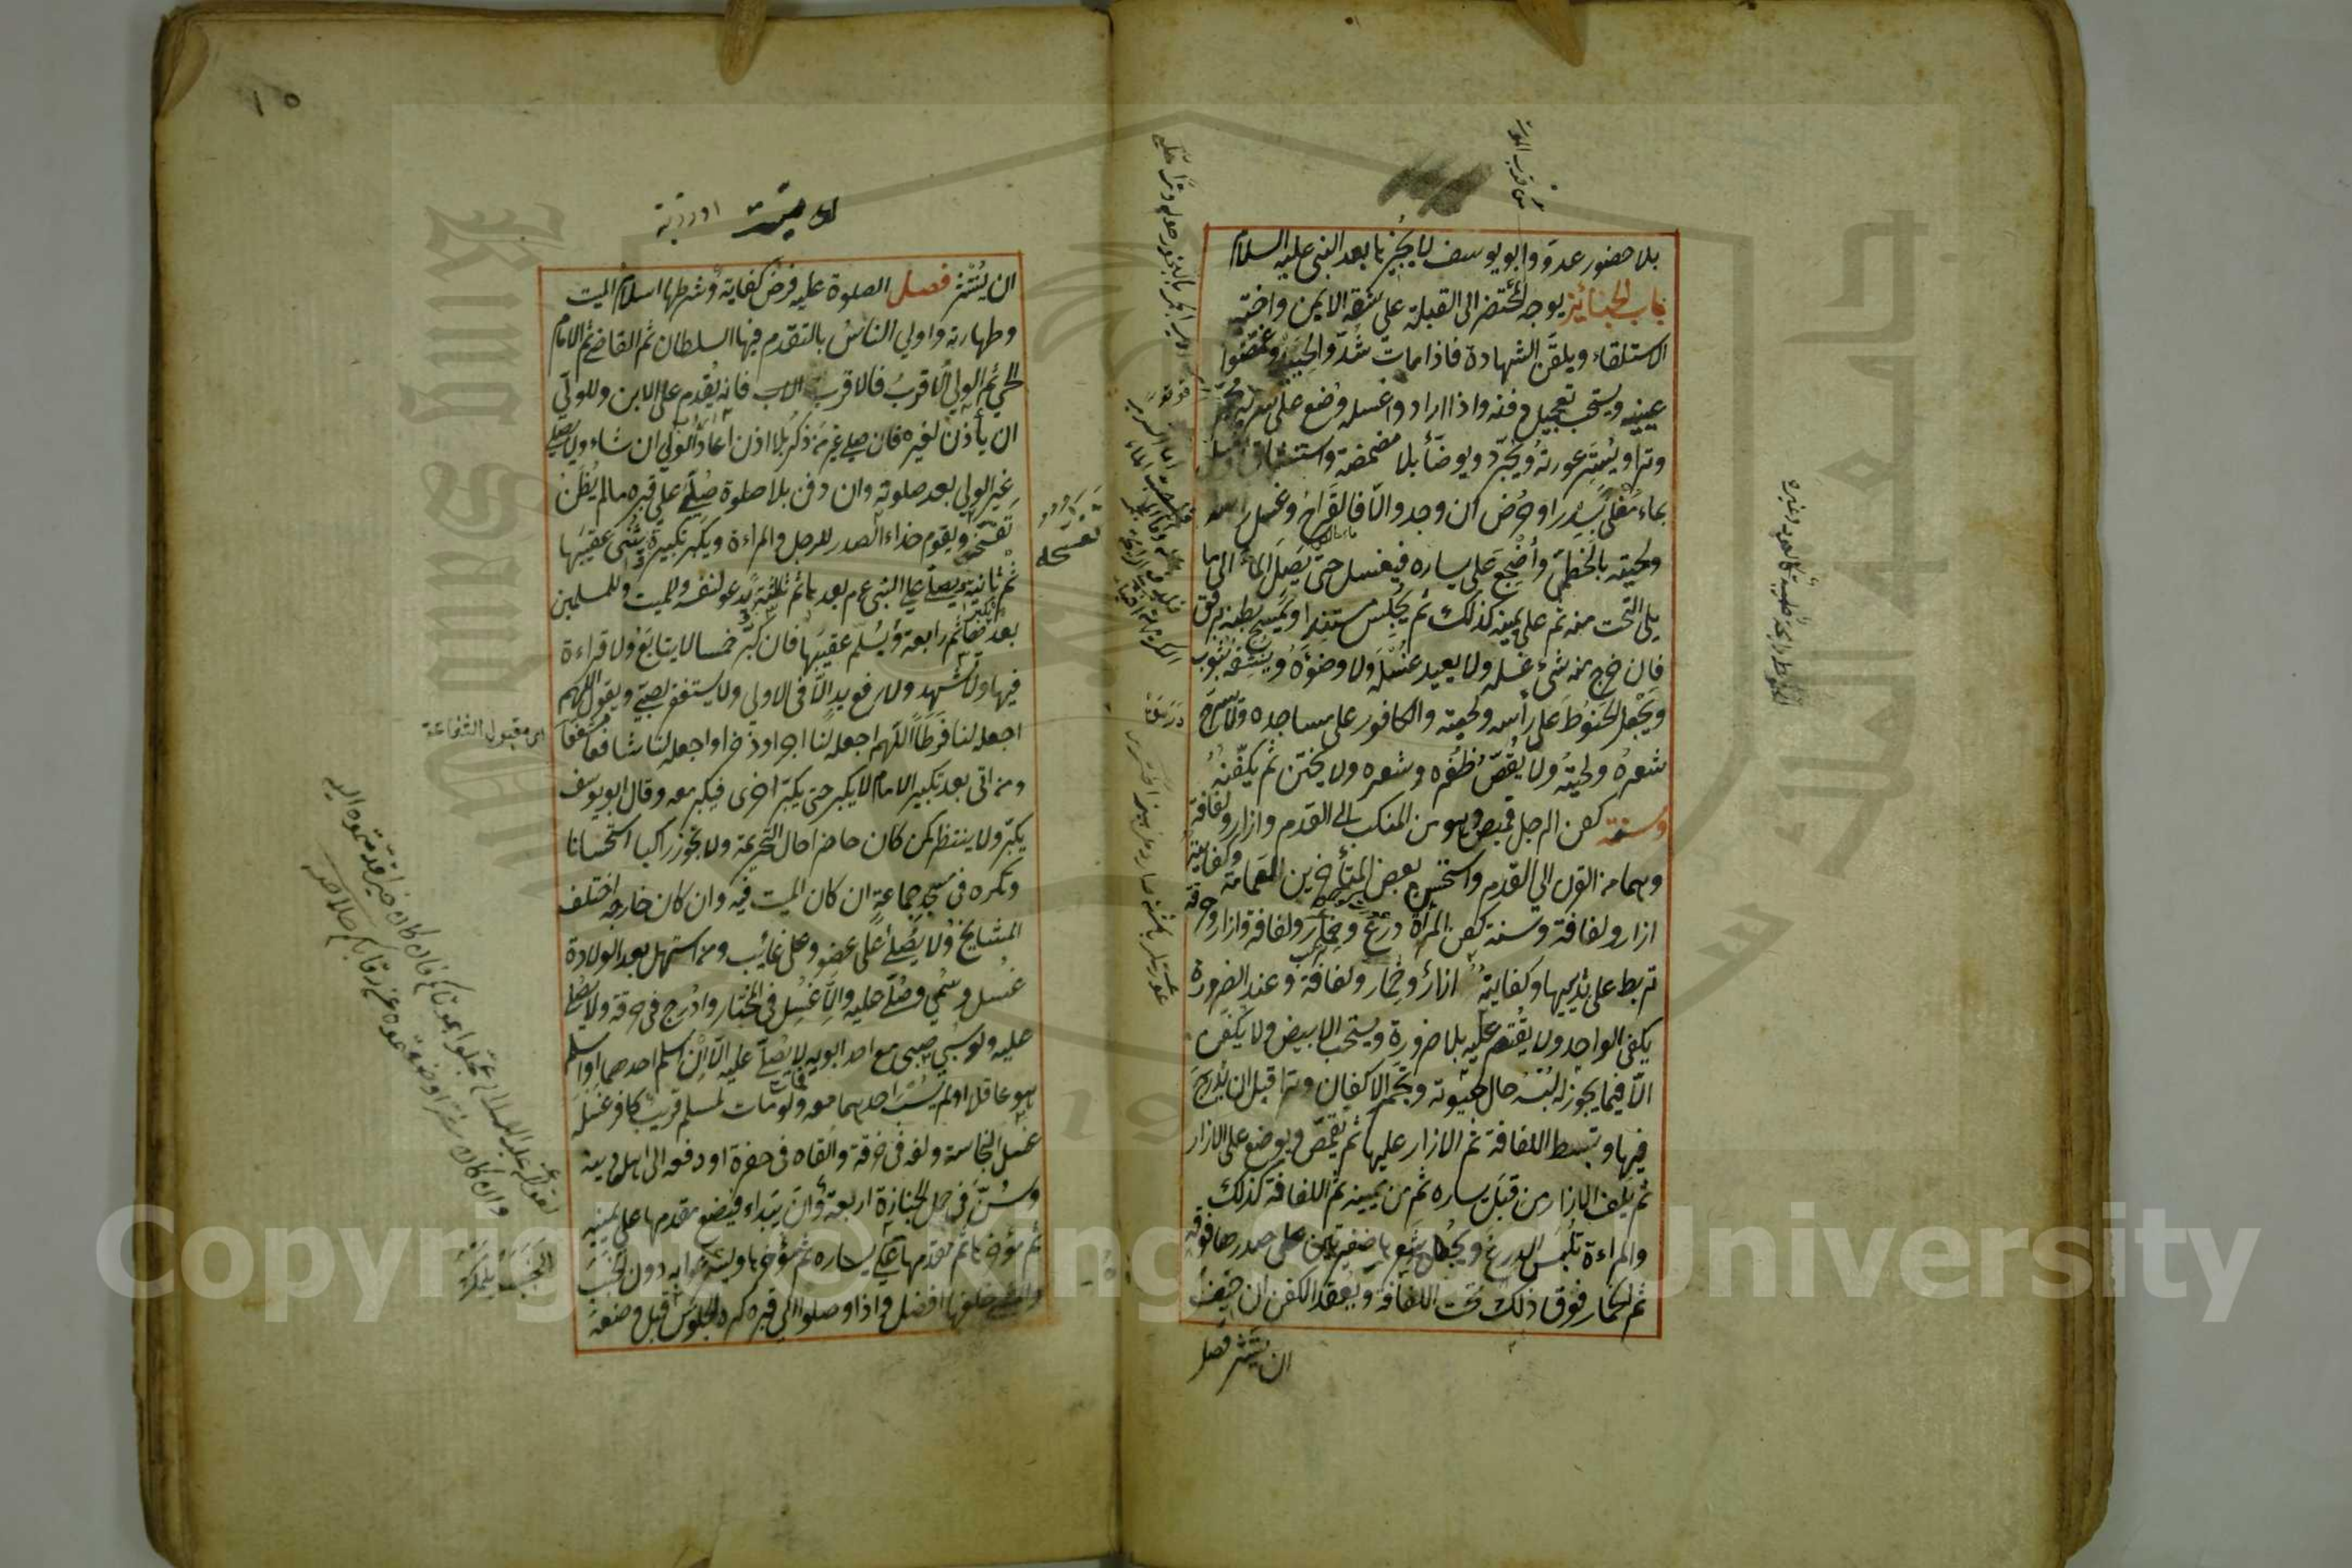 بلا حضور عدو وابو يوسف لا يجيزها بعد النبي عليه السلام
باب الجنائز يوجه المحتضر الى القبلة على شقه الايمن واختير
الاستلقاء ويلقن الشهادة فاذا مات شدوا لحييه وغمضوا
عينيه ويستحب تعجيل دفنه واذا ارادوا غسله وضع على سرير مجمر
وترا ويستر عورته ويجرد ويوضأ بلا مضمضة واستنشاق وغسل
بماء مغلى بسدر او حرض ان وجد والا فالقراح وغسل راسه
ولحيته بالخطمى واضجع على يساره فيغسل حتى يصل الماء الى ما
يلى التخت منه ثم على يمينه كذلك ثم يجلس مستندا ويمسح بطنه برفق
فان خرج منه شئ غسله ولا يعيد غسله ولا وضوءه وينشفه بثوب
ويجعل الحنوط على رأسه ولحيته والكافور على مساجده ولا يسرح
شعره ولحيته ولا يقص ظفره وشعره ولا يختن ثم يكفنه
وسنة كفن الرجل قميص وهو من المنكب الى القدم وازار ولفافة
وهما من القرن الى القدم واستحسن بعض المتأخرين العمامة وكفايته
ازار ولفافة وسنة كفن المرأة درع وخمار ولفافة وازار وخرقة
تربط على ثدييها وكفايته ازار وخمار ولفافة وعند الضرورة
يكفى الواحد ولا يقتصر عليه بلا ضرورة ويستحب الابيض ولا يكفن
الا فيما يجوز له لبسه حال حيوته وتجمر الاكفان وترا قبل ان يدرج
فيها وتبسط اللفافة ثم الازار عليها ثم يقمص ويوضع على الازار
ثم يلف الازار من قبل يساره ثم من يمينه ثم اللفافة كذلك
والمراءة تلبس الدرع ويجعل شعرها ضفيرتين على صدرها فوقه
ثم الخمار فوق ذلك تحت اللفافة ويعقد الكفن ان خيف
ان ينتشر فصل
١٥
ان ينتشر فصل الصلوة عليه فرض كفاية وشرطها اسلام الميت
وطهارته واولى الناس بالتقدم فيها السلطان ثم القاضى ثم الامام
الحى ثم الولى الاقرب فالاقرب الا الاب فانه يقدم على الابن وللولى
ان يأذن لغيره فان صلى غير من ذكر بلا اذن اعاد الولى ان شاء ولا يصلى
غير الولى بعد صلوته وان دفن بلا صلوة صلى على قبره ما لم يظن
تفسخه ويقوم حذاء الصدر للرجل والمراءة ويكبر تكبيرة يثنى عقيبها
ثم ثانية يصلى على النبى عم بعدها ثم ثالثة يدعو لنفسه وللميت وللمسلمين
بعدها ثم رابعة ويسلم عقيبها فان كبر خمسا لا يتابع ولا قراءة
فيها ولا تشهد ولا رفع يد الا فى الاولى ولا يستغفر لصبى ويقول اللهم
اجعله لنا فرطا اللهم اجعله لنا اجرا وذخرا واجعله لنا شافعا مشفعا
ومن اتى بعد تكبير الامام لا يكبر حتى يكبر اخرى فيكبر معه وقال ابو يوسف
يكبر ولا ينتظر كمن كان حاضرا حال التحريمة ولا يجوز راكبا استحسانا
وتكره فى مسجد جماعة ان كان الميت فيه وان كان خارجه اختلف
المشايخ ولا يصلى على عضو وعلى غائب ومن استهل بعد الولادة
غسل وسمى وصلى عليه والا غسل فى المختار وادرج فى خرقة ولا يصلى
عليه ولو سبى صبى مع احد ابويه لا يصلى عليه الا ان اسلم احدهما او اسلم
هو عاقلا او لم يسب احدهما معه ولو مات لمسلم قريب كافر غسله
غسل النجاسة ولفه فى خرقة والقاه فى حفرة او دفعه الى اهل دينه
وسن فى حمل الجنازة اربعة وان يبداء فيضع مقدمها على يمينه
ثم مؤخرها ثم مقدمها على يساره ثم مؤخرها ويسرعوا به دون الخبب
والمشى خلفها افضل واذا وصلوا الى قبره كره الجلوس قبل وضعه
اى مقبول الشفاعة